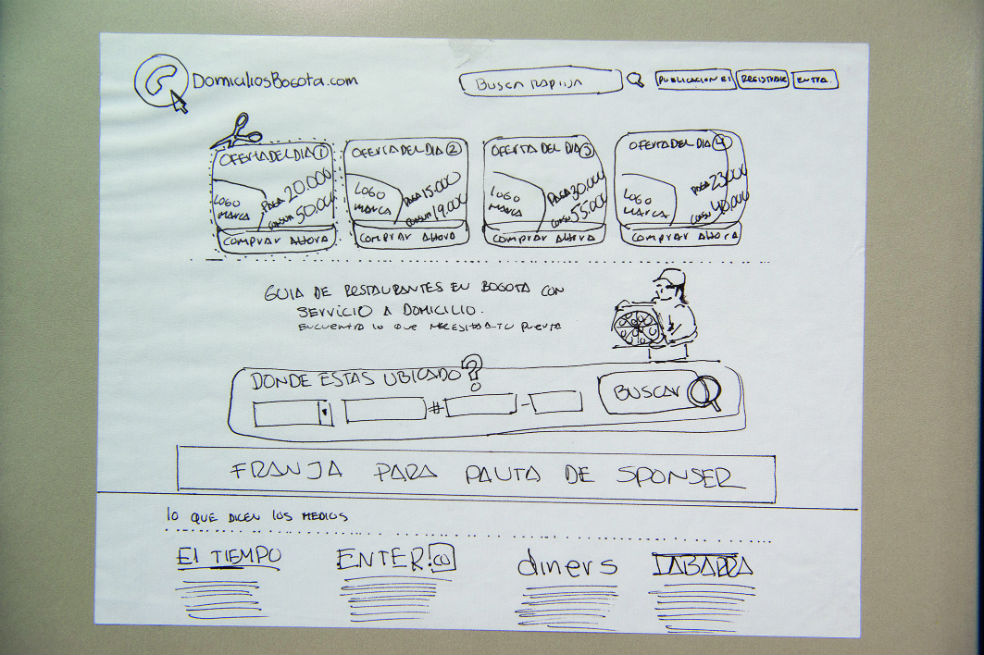 DomiciliosBogota.com
BUSCA RAPIDA
PUBLICACION EI
REGISTRAR
ENTRA.
OFERTA DEL DIA 1
LOGO MARCA
PAGA 20.000
CONSUM 50.000
COMPRAR AHORA
OFERTA DEL DIA 2
LOGO MARCA
PAGA 15.000
CONSUM 19.000
COMPRAR AHORA
OFERTA DEL DIA 3
LOGO MARCA
PAGA 30.000
CONSU 55.000
COMPRAR AHORA
OFERTA DEL DIA 4
LOGO MARCA
PAGA 23.000
CONSU 40.000
COMPRAR AHORA
GUIA DE RESTAURANTES EN BOGOTA CON
SERVICIO A DOMICILIO.
ENCUENTRA LO QUE NECESITA TU PUERTA
DONDE ESTAS UBICADO?
# -
BUSCAR
FRANJA PARA PAUTA DE SPONSER
LO QUE DICEN LOS MEDIOS
El TIEMPO
ENTER.CO
diners
LABARRA